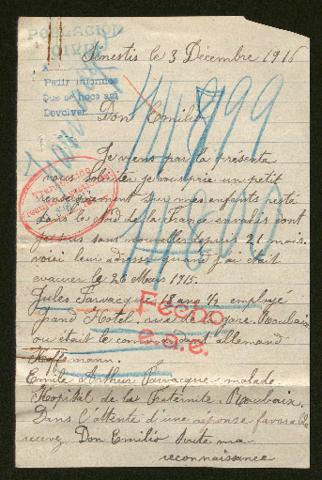 POBLACION
CIVIL
Pedir informes
Que se hace asi
Devolver.
le 3 Décembre 1916
Don Emilio
44899
Je viens par la présente
vous solliciter je vous prie un petit
renseignement sur mes enfants resté
dans le Nord de la France envahis dont
je suis sans nouvelles depuis 21 mois.
voici leur adresse quand j'ai était
evacuer le 26 Mars 1915.
Jules Farvacque 18 ans ½ employé
Grand Hotel, rue de la gare, Roubaix
ou était le commandant allemand
Hoffmann.
Emile Arthur Farvacque malade
Hopital de la Fraternité, Roubaix.
Dans l'attente d'une réponse favorable
recevez Don Emilio toute ma
reconnaissance
Fecho